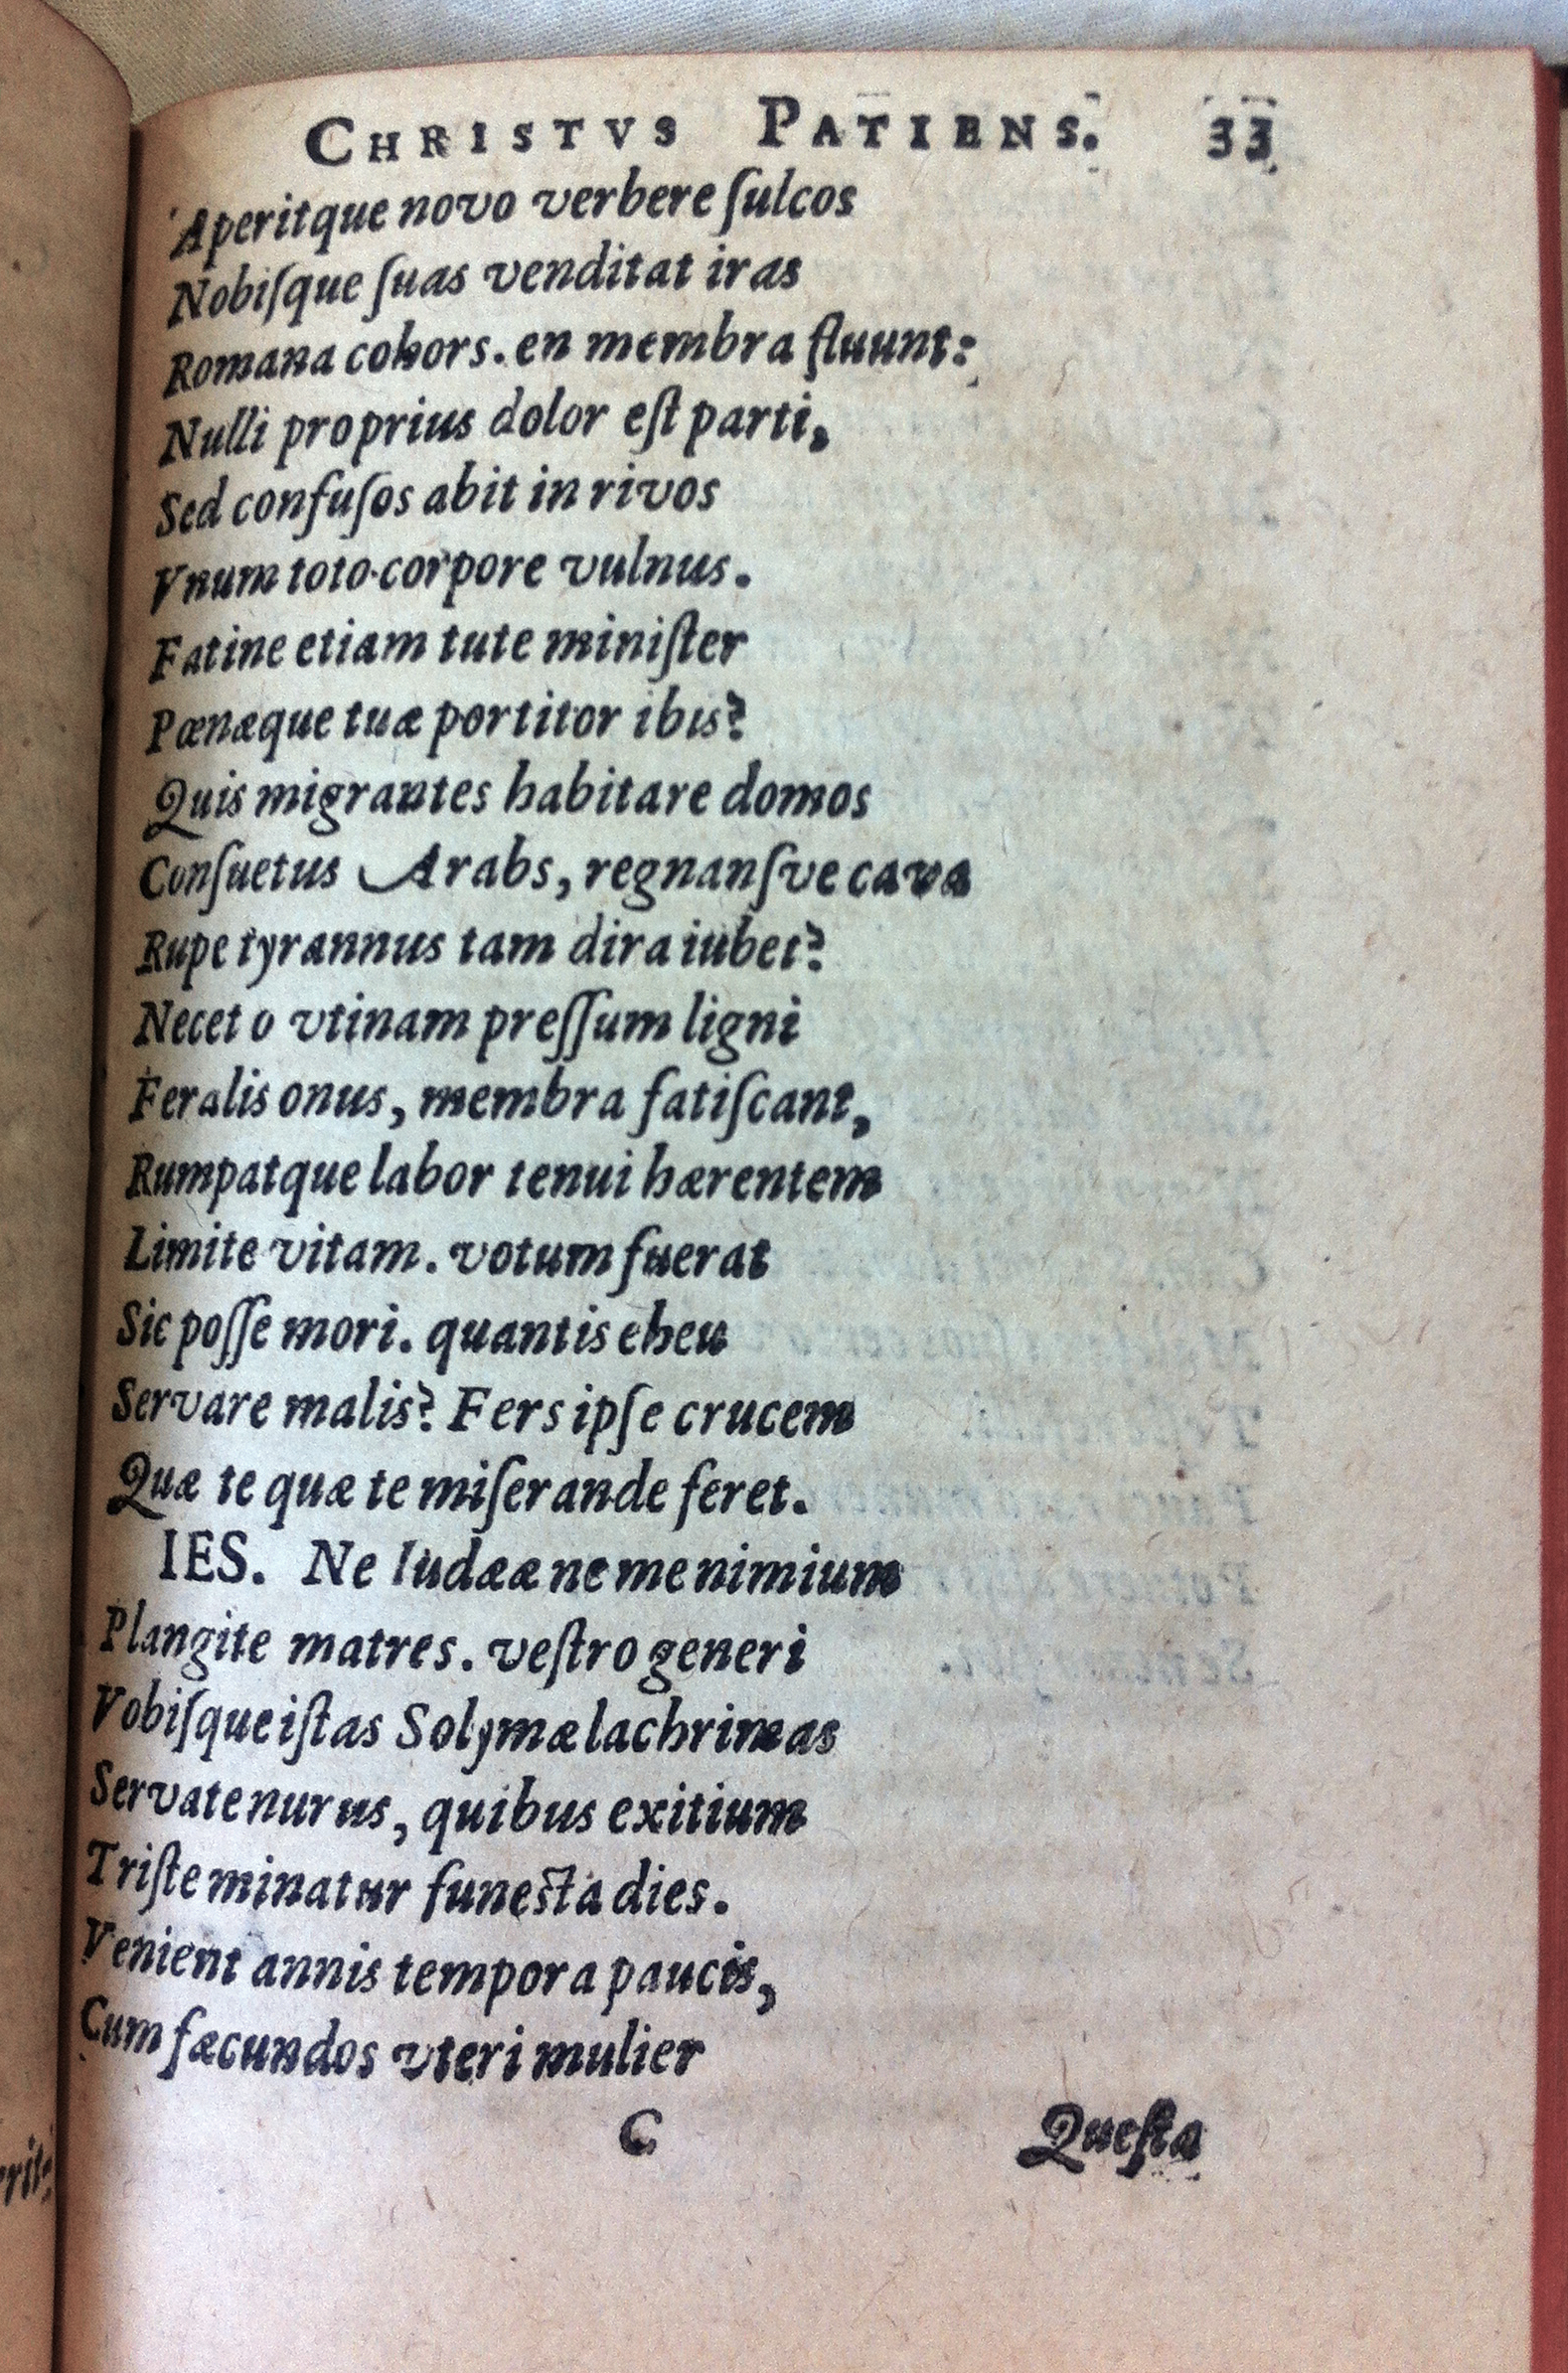 CHRISTVS PATIENS. 33
Aperitque novo verbere ſulcos
Nobiſque ſuas venditat iras
Romana cohors. en membra fluunt:
Nulli proprius dolor eſt parti,
Sed confuſos abit in rivos
Vnum toto corpore vulnus.
Fatine etiam tute miniſter
Pœnæque tuæ portitor ibis?
Quis migrantes habitare domos
Conſuetus Arabs, regnanſve cava
Rupe tyrannus tam dira iubet?
Necet o vtinam preſſum ligni
Feralis onus, membra fatiſcant,
Rumpatque labor tenui hærentem
Limite vitam. votum fuerat
Sic poſſe mori. quantis eheu
Servare malis? Fers ipſe crucem
Quæ te quæ te miſerande feret.
IES. Ne Iudææ ne me nimium
Plangite matres. veſtro generi
Vobiſque iſtas Solymæ lachrimas
Servate nurus, quibus exitium
Triſte minatur funeſta dies.
Venient annis tempora paucis,
Cum fæcundos vteri mulier
C Queſta